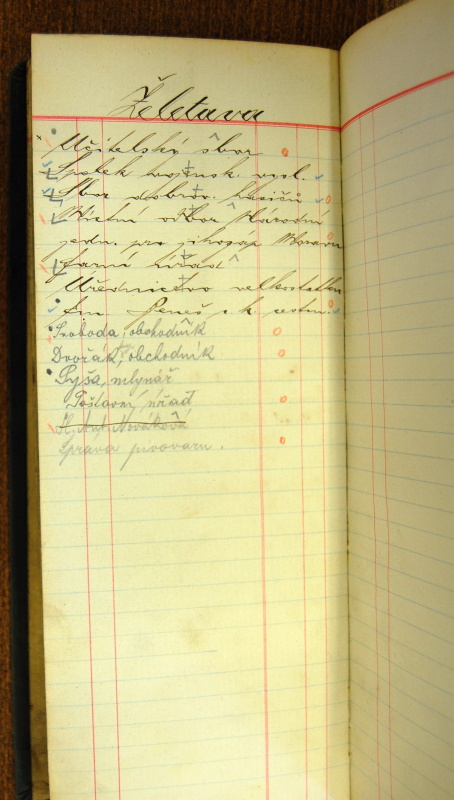 Želetava
Učitelský sbor
Spolek vojensk. vysl.
Sbor dobrov. hasičů
Místní odbor Národní
jedn. pro jihozáp. Moravu
Farní úřad
Úřednictvo velkostatku
Beneš c. k. 
Svoboda, obchodník
Dvořák, obchodník
Pyša, mlynář
Poštovní úřad
Nováková
Správa pivovaru.